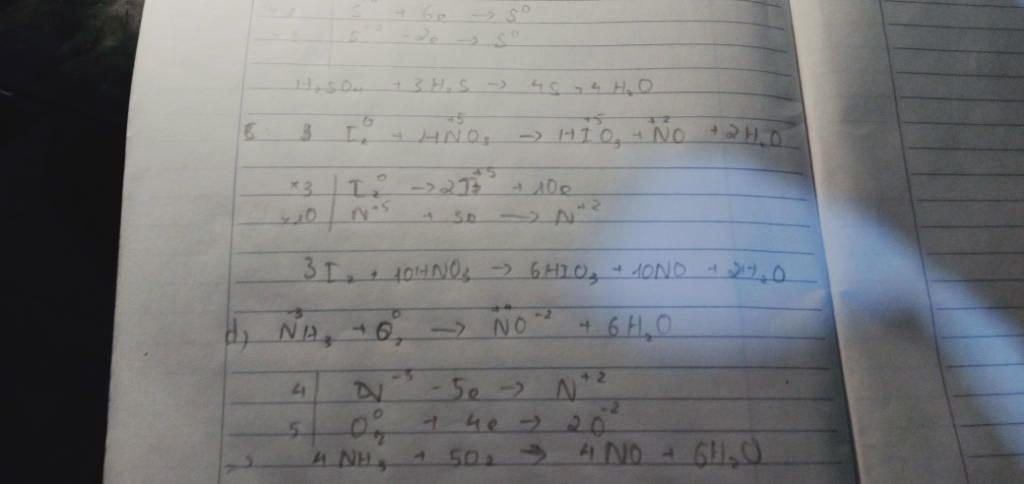 S + 6e → S⁰
S⁻² - 2e → S⁰
H₂SO₄ + 3H₂S → 4S + 4H₂O
I₂⁰ + HN⁺⁵O₃ → HI⁺⁵O₃ + N⁺²O + 2H₂O
×3 | I₂⁰ → 2I⁺⁵ + 10e
×10 | N⁺⁵ + 3e → N⁺²
3I₂ + 10HNO₃ → 6HIO₃ + 10NO + 2H₂O
d) N⁻³H₃ + O₂⁰ → NO⁻² + 6H₂O
4 | N⁻³ - 5e → N⁺²
5 | O₂⁰ + 4e → 2O⁻²
=> 4NH₃ + 5O₂ → 4NO + 6H₂O